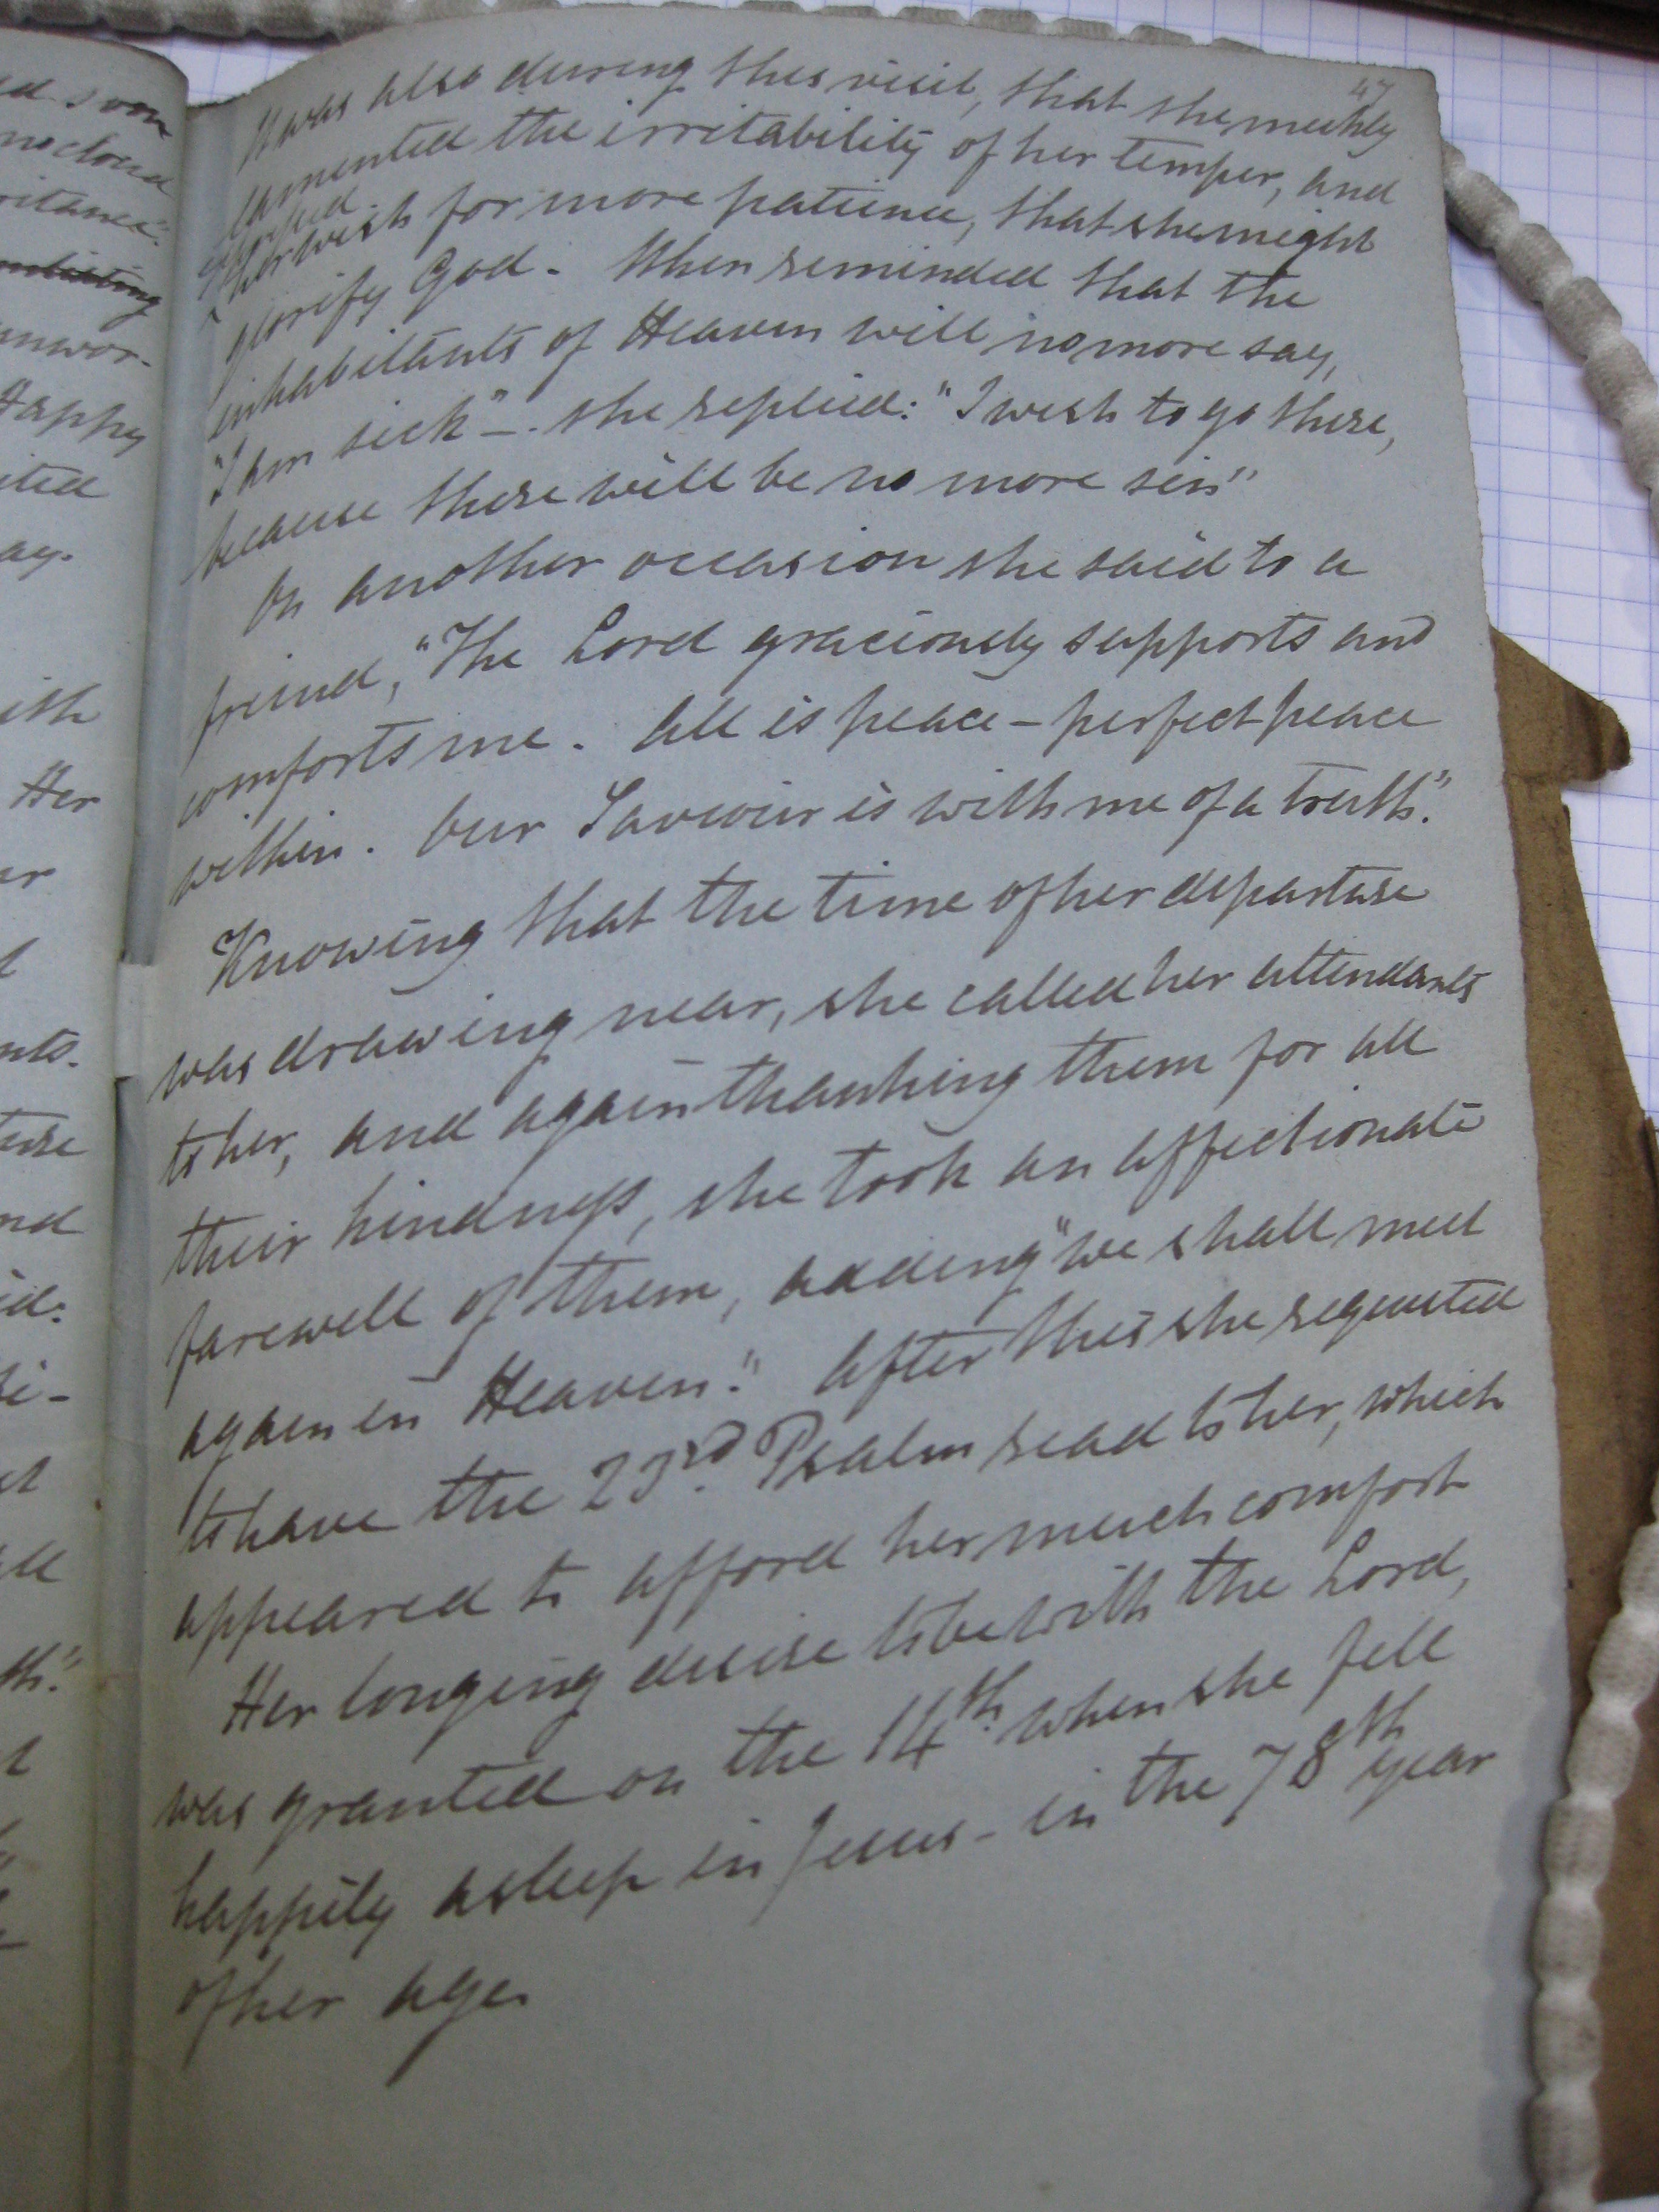 ed s on
no cloud
ritance".
Happy
ited
ay.
ith
Her
er
nts.
nd
id:
si-
th."
47
It was also during this visit, that she meekly
lamented the irritability of her temper, and
expressed
her wish for more patience, that she might
glorify God. When reminded that the
inhabitants of Heaven will no more say,
"I am sick" -. she replied: "I wish to go there,
because there will be no more sin"
On another occasion she said to a
friend, "The Lord graciously supports and
comforts me. All is peace - perfect peace
within. Our Saviour is with me of a truth".
Knowing that the time of her departure
was drawing near, she called her attendants
to her, and again thanking them for all
their kindness, she took an affectionate
farewell of them, adding "we shall meet
again in Heaven." After this she requested
to have the 23rd. Psalm read to her, which
appeared to afford her much comfort
Her longing desire to be with the Lord,
was granted on the 14th. when she fell
happily asleep in Jesus - in the 78th year
of her age.